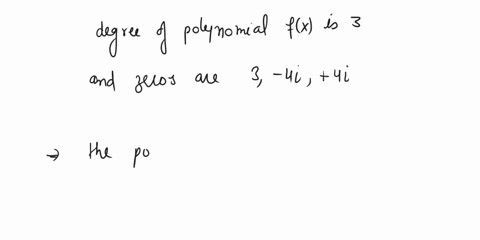 degree of polynomial f(x) is 3
and zeros are 3, -4i, +4i
→ the po